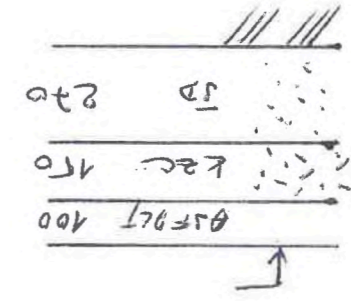 ASFALT 100
KZC 150
ŠD 270